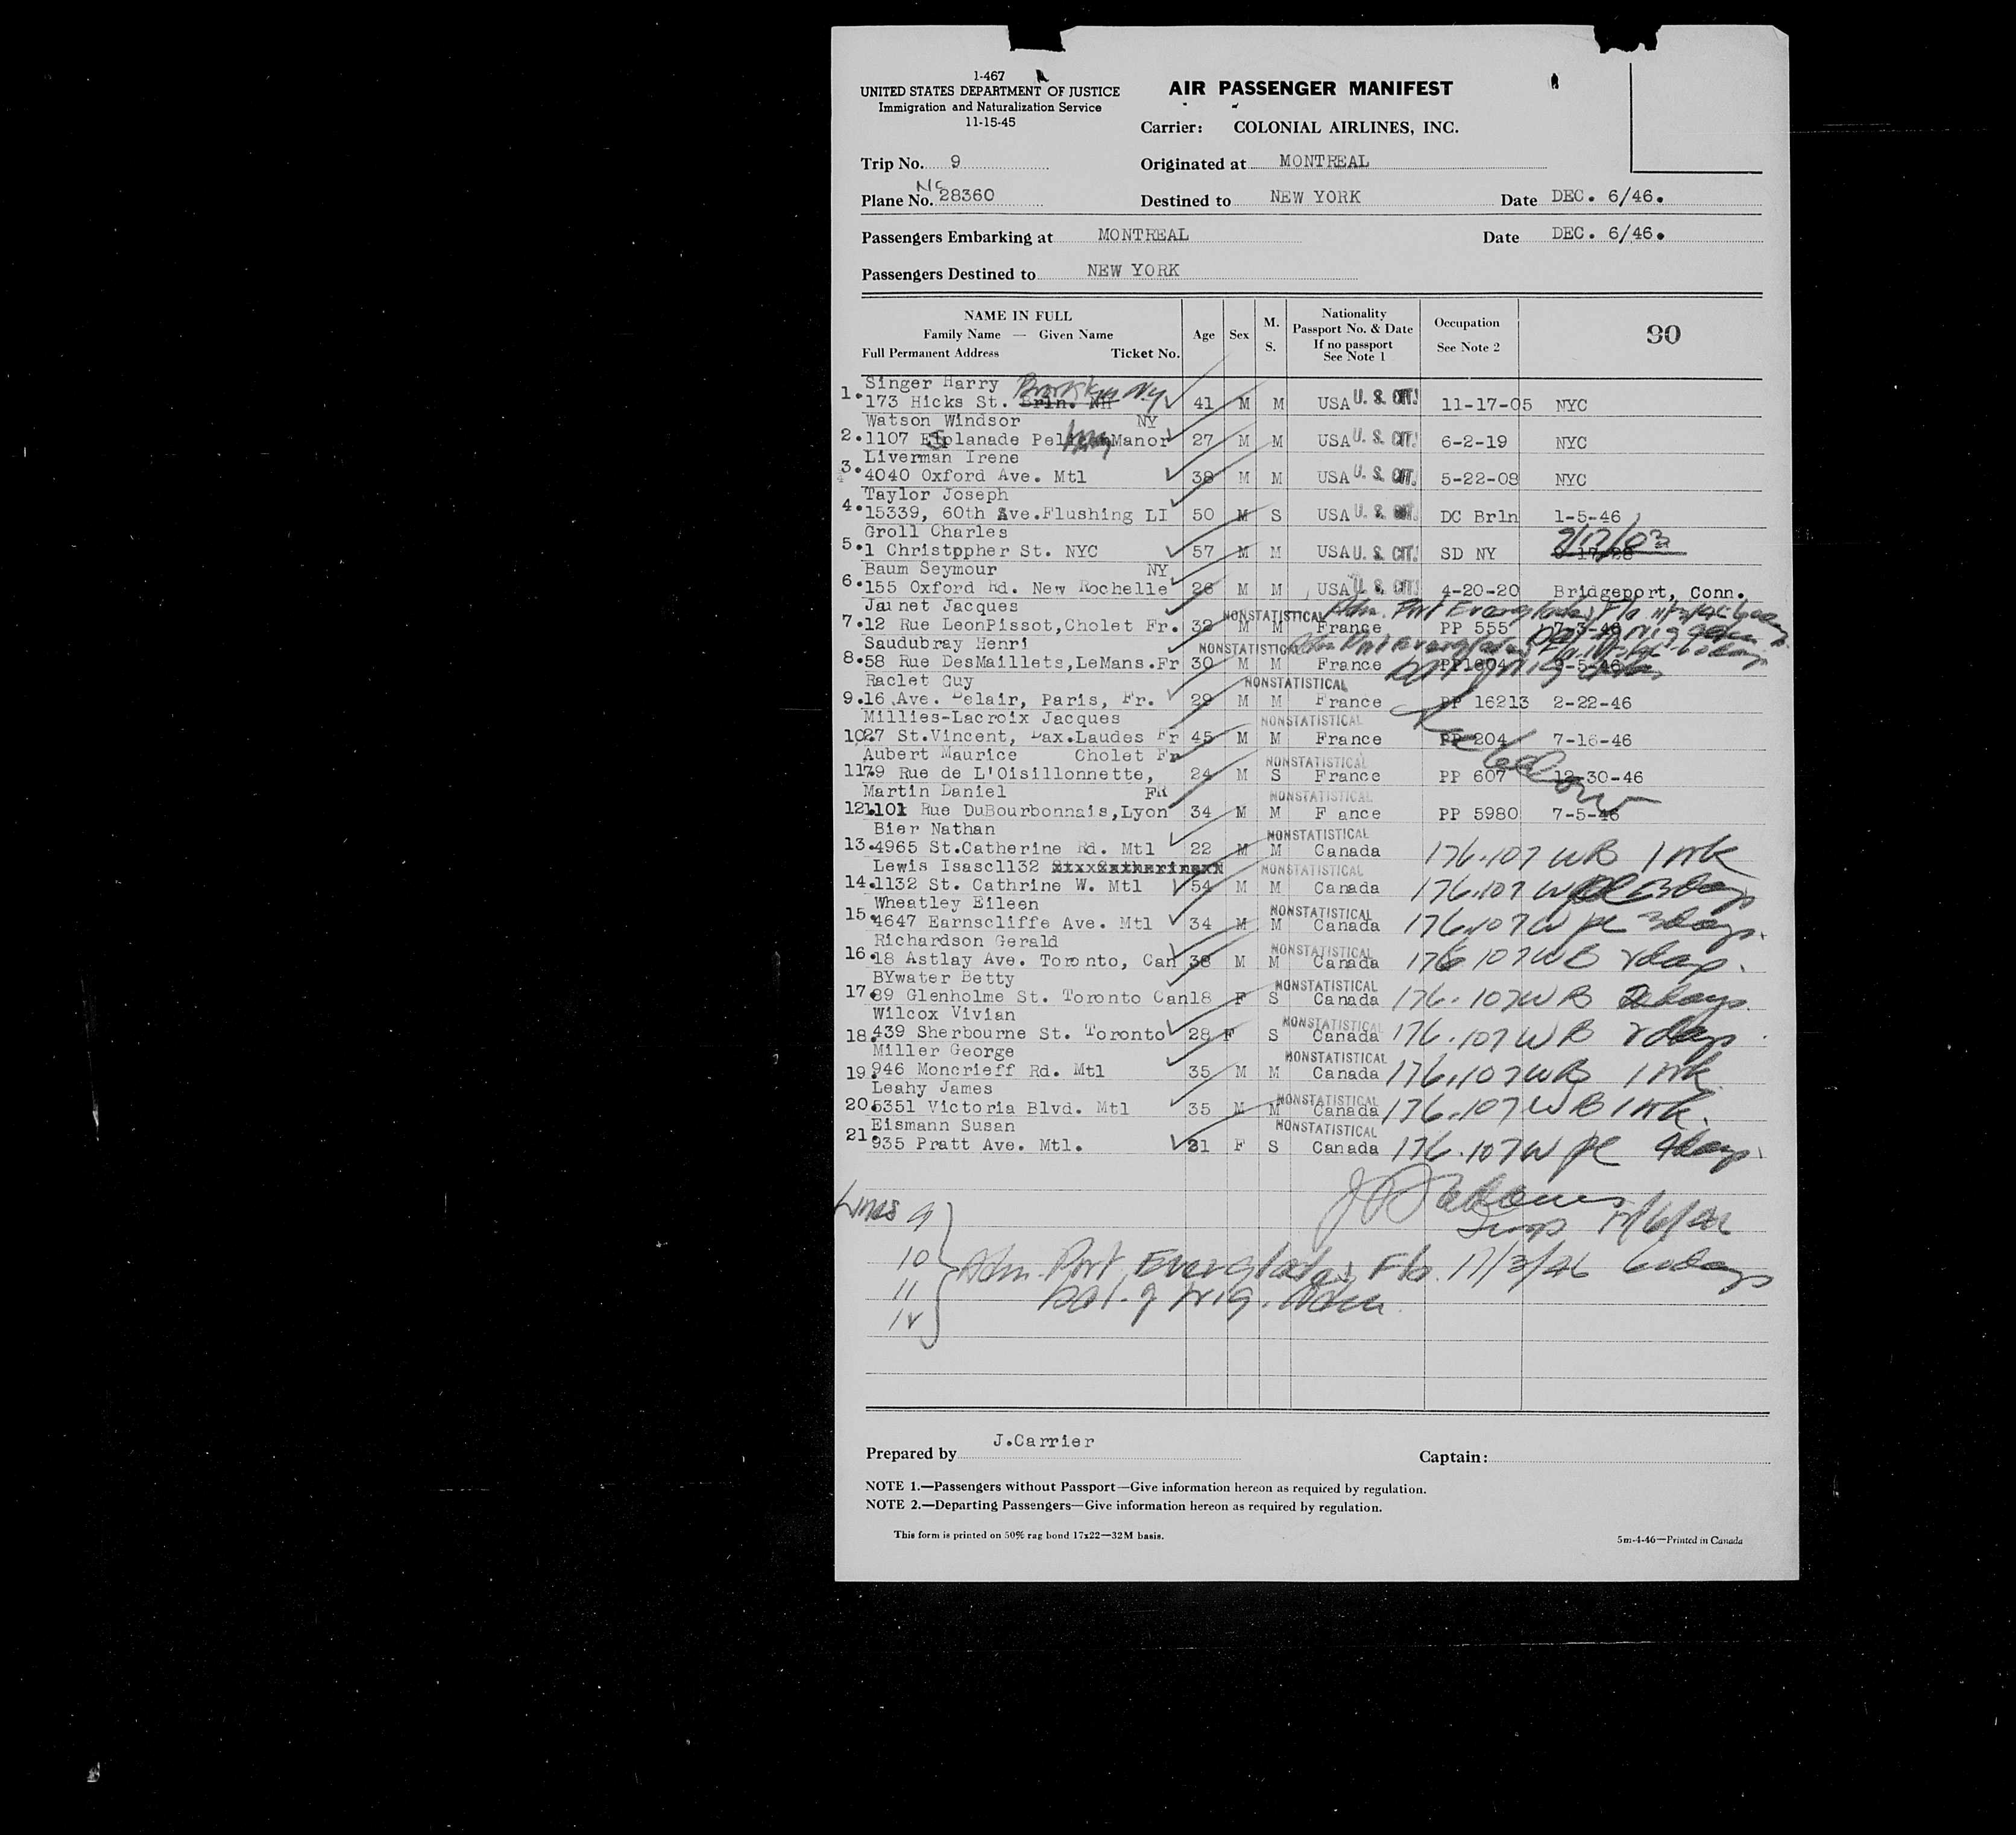 1-467
UNITED STATES DEPARTMENT OF JUSTICE
Immigration and Naturalization Service
11-15-45
AIR PASSENGER MANIFEST
Carrier: COLONIAL AIRLINES, INC.
Trip No. 9
Originated at MONTREAL
NC
Plane No. 28360
Destined to NEW YORK
Date DEC. 6/46.
Passengers Embarking at MONTREAL
Date DEC. 6/46.
Passengers Destined to NEW YORK
NAME IN FULL
Family Name — Given Name
Full Permanent Address Ticket No.
Age
Sex
M. S.
Nationality
Passport No. & Date
If no passport
See Note 1
Occupation
See Note 2
90
Singer Harry Brooklyn N.Y.
1. 173 Hicks St. Brln. NH 41 M M USA U. S. CIT. 11-17-05 NYC
Watson Windsor NY
2. 1107 Esplanade Manor 27 M M USA U. S. CIT. 6-2-19 NYC
Liverman Irene
3. 4040 Oxford Ave. Mtl 38 M M USA U. S. CIT. 5-22-08 NYC
Taylor Joseph
4. 15339, 60th Ave.Flushing LI 50 M S USA U. S. CIT. DC Brln 1-5-46
Groll Charles 9/17/03
5. 1 Christppher St. NYC 57 M M USA U. S. CIT. SD NY 9-17-28
Baum Seymour NY
6. 155 Oxford Rd. New Rochelle 26 M M USA U. S. CIT. 4-20-20 Bridgeport, Conn.
Jainet Jacques NONSTATISTICAL Adm. Port Everglades Fla
7. 12 Rue LeonPissot,Cholet Fr. 32 M M France PP 555 7-3-46
Saudubray Henri NONSTATISTICAL Adm Port Everglades Fla
8. 58 Rue DesMaillets,LeMans.Fr 30 M M France PP1804 9-5-46
Raclet Guy NONSTATISTICAL
9. 16 Ave. Belair, Paris, Fr. 29 M M France PP 16213 2-22-46
Millies-Lacroix Jacques NONSTATISTICAL
10. 27 St.Vincent, Dax.Laudes Fr 45 M M France PP 204 7-16-46
Aubert Maurice Cholet Fr NONSTATISTICAL
11. 79 Rue de L'Oisillonnette, 24 M S France PP 607 12-30-46
See below
Martin Daniel FR NONSTATISTICAL
12. 101 Rue DuBourbonnais,Lyon 34 M M F ance PP 5980 7-5-46
Bier Nathan NONSTATISTICAL
13. 4965 St.Catherine Rd. Mtl 22 M M Canada 176.107 WB 1 wk
Lewis Isasc1132 NONSTATISTICAL
14. 1132 St. Cathrine W. Mtl 54 M M Canada 176.107 W 3 days
Wheatley Eileen NONSTATISTICAL
15. 4647 Earnscliffe Ave. Mtl 34 M M Canada 176.107 W pl 3 days.
Richardson Gerald NONSTATISTICAL
16. 18 Astlay Ave. Toronto, Can 38 M M Canada 176.107 WB 2 days.
BYwater Betty NONSTATISTICAL
17. 89 Glenholme St. Toronto Can 18 F S Canada 176.107 W B 2 days.
Wilcox Vivian NONSTATISTICAL
18. 439 Sherbourne St. Toronto 28 F S Canada 176.107 W B 2 days
Miller George NONSTATISTICAL
19. 946 Moncrieff Rd. Mtl 35 M M Canada 176.107 WB 1 wk
Leahy James NONSTATISTICAL
20. 5351 Victoria Blvd. Mtl 35 M M Canada 176.107 W B 1 wk.
Eismann Susan NONSTATISTICAL
21. 935 Pratt Ave. Mtl. 21 F S Canada 176.107 W pl 4 days
Insp 12/6/46
Lines 9
10 Adm. Port Everglades Fla. 11/3/46 60 days
11 Bal. of orig. Adm
12
Prepared by J.Carrier
Captain:
NOTE 1.—Passengers without Passport—Give information hereon as required by regulation.
NOTE 2.—Departing Passengers—Give information hereon as required by regulation.
This form is printed on 50% rag bond 17x22—32M basis.
5m-4-46—Printed in Canada